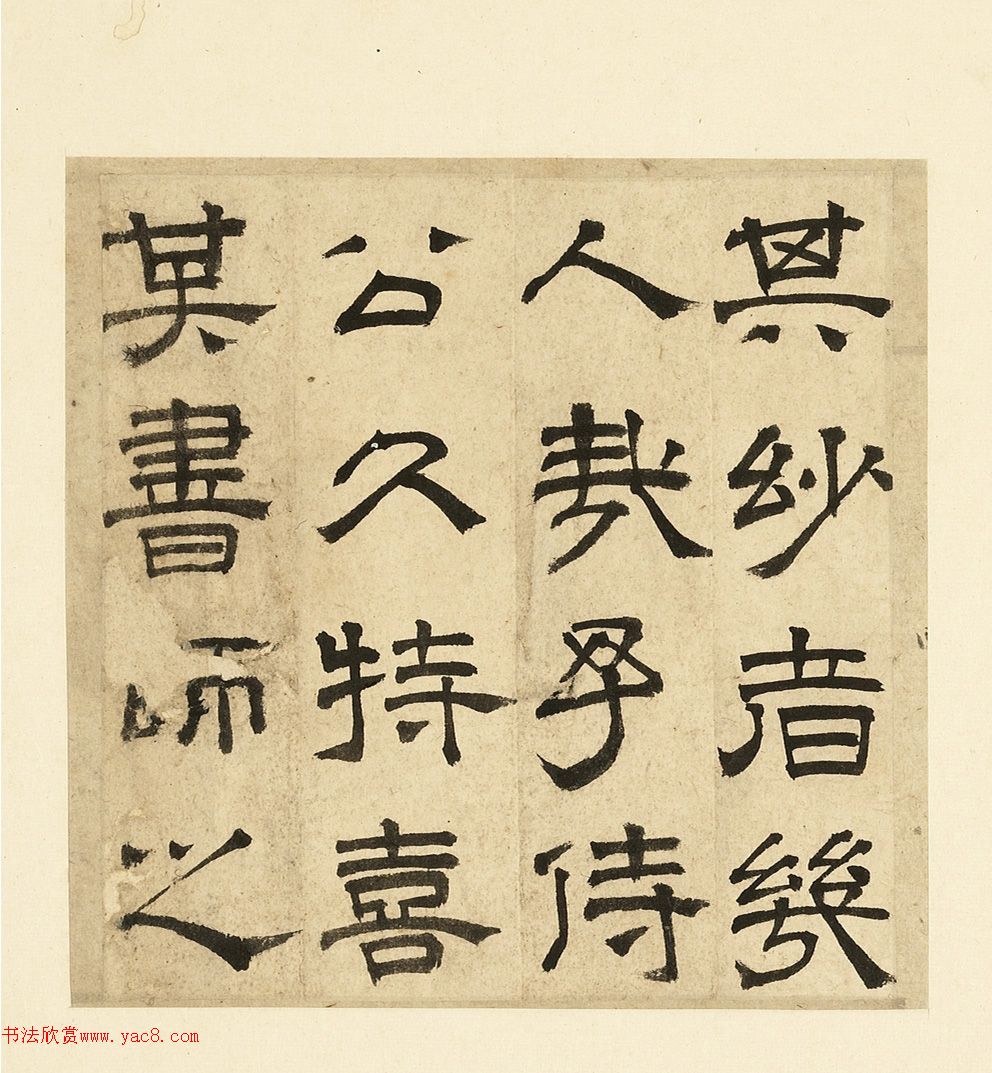 其玅者幾
人哉予侍
公久特喜
某書師之
书法欣赏www.yac8.com